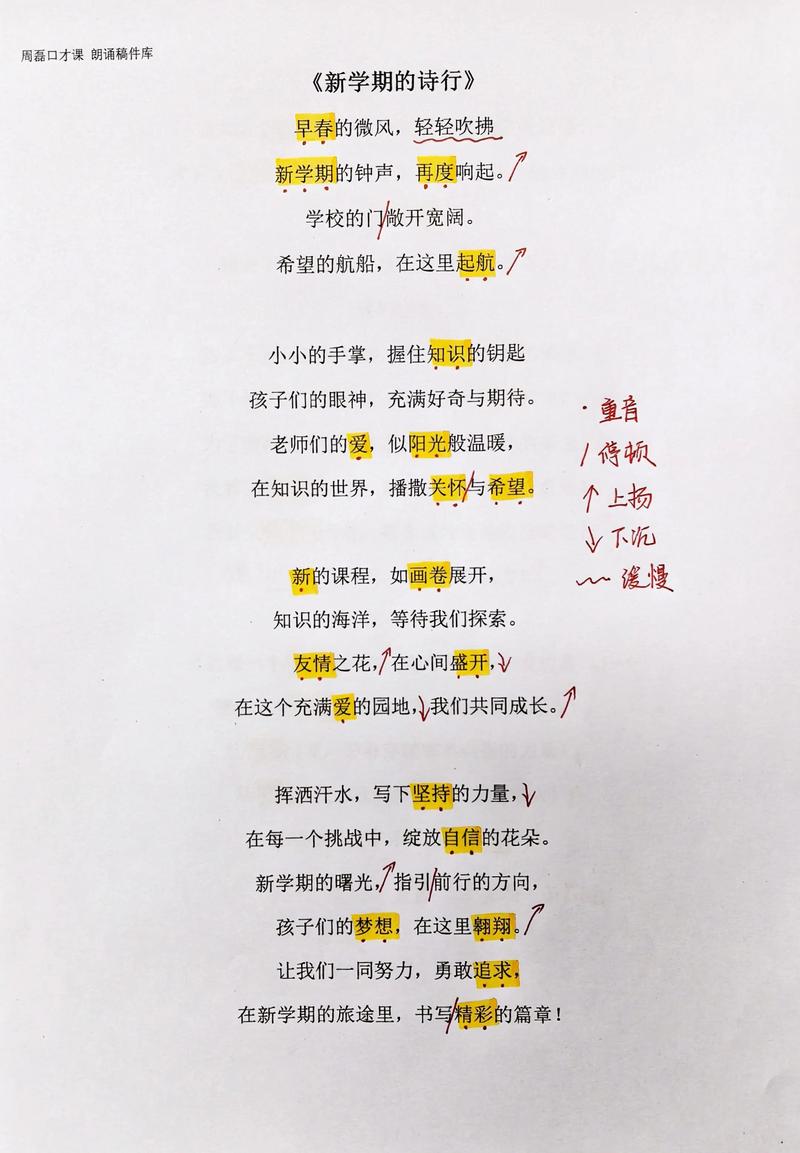 周磊口才课 朗诵稿件库
《新学期的诗行》
早春的微风，轻轻吹拂
新学期的钟声，再度响起。
学校的门敞开宽阔。
希望的航船，在这里起航。
小小的手掌，握住知识的钥匙
孩子们的眼神，充满好奇与期待。
老师们的爱，似阳光般温暖，
在知识的世界，播撒关怀与希望。
新的课程，如画卷展开，
知识的海洋，等待我们探索。
友情之花，在心间盛开，
在这个充满爱的园地，我们共同成长。
挥洒汗水，写下坚持的力量，
在每一个挑战中，绽放自信的花朵。
新学期的曙光，指引前行的方向，
孩子们的梦想，在这里翱翔。
让我们一同努力，勇敢追求，
在新学期的旅途里，书写精彩的篇章！
· 重音
/ 停顿
↑ 上扬
↓ 下沉
﹏ 缓慢